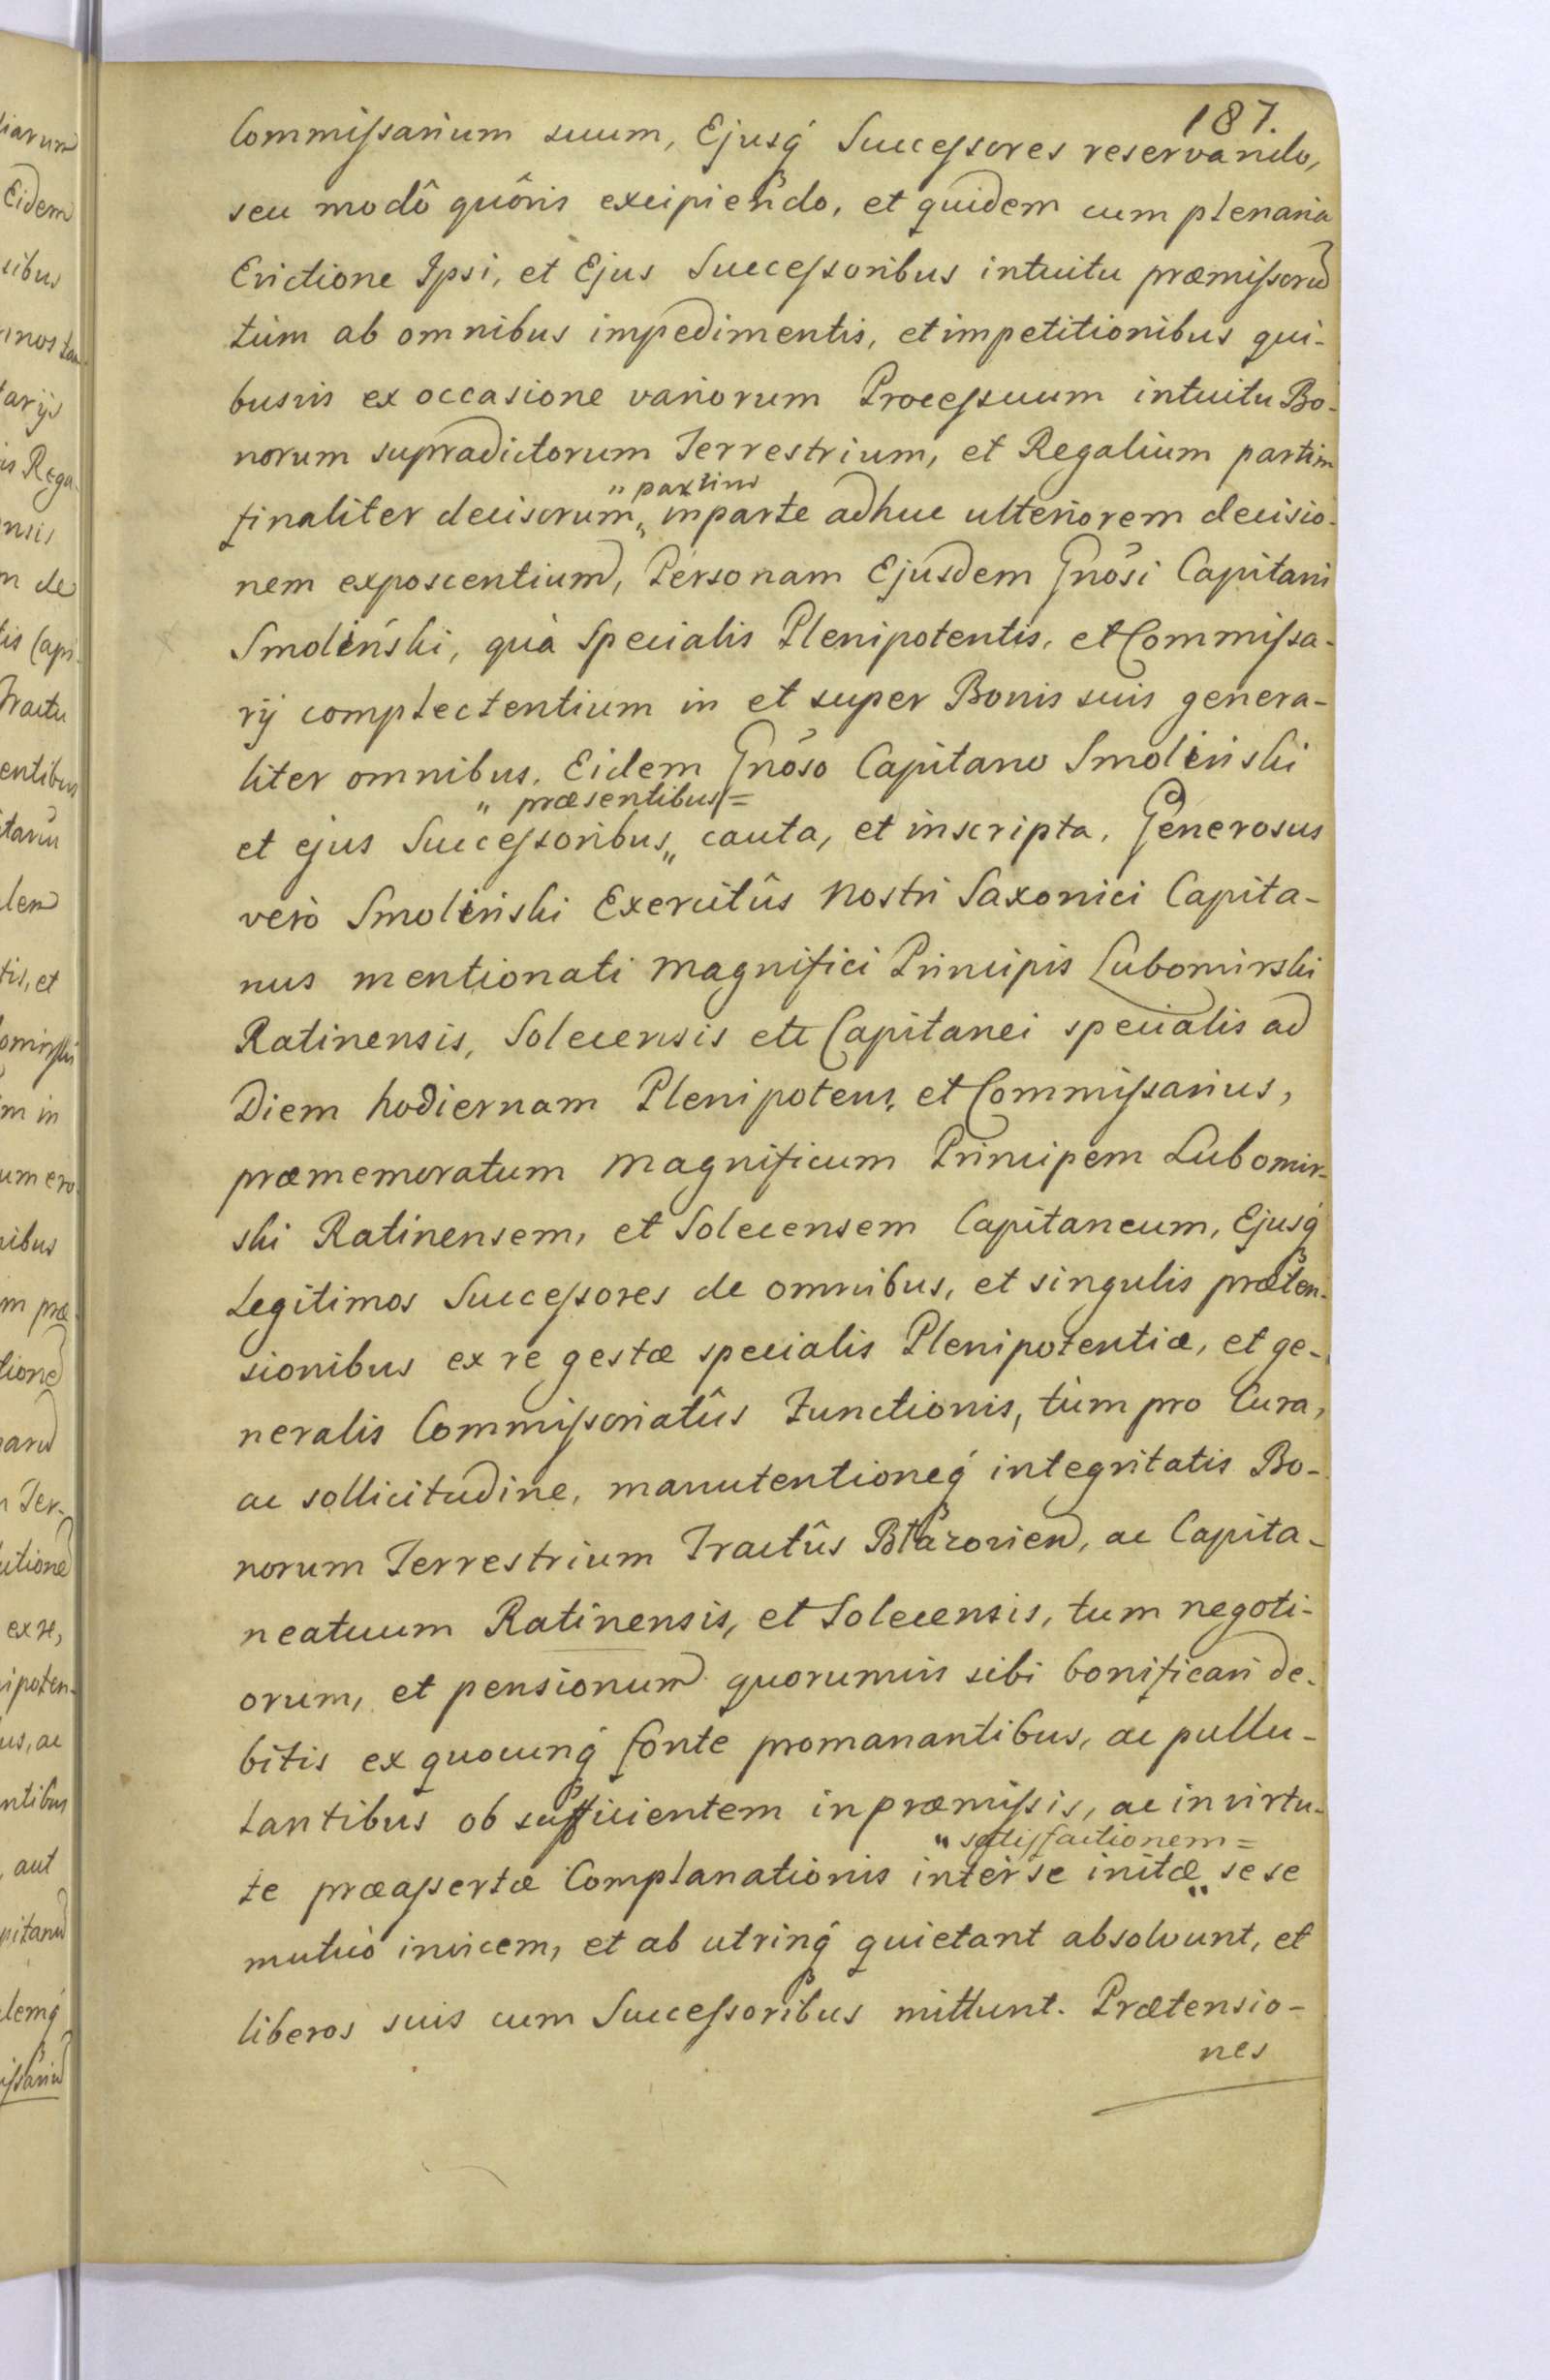 187.
Commissarium suum, Ejusq́ Successores reservando,
seu modô quôvis excipiendo, et quidem cum plenaria
Evictione Ipsi, et Ejus Successoribus intuitu præmissorum
tùm ab omnibus impedimentis, et impetitionibus qui-
busvis ex occasione variorum Processuum intuitu Bo-
norum supradictorum Terrestrium, et Regalium partim
„ partim
finaliter decisorum„ in parte adhuc ulteriorem decisio-
nem exposcentium, Personam Ejusdem Gnõsi Capitani
Smoliński, quà Specialis Plenipotentis, et Commissa-
rij complectentium in et super Bonis suis genera-
liter omnibus. Eidem Gnõso Capitano Smoliński
„ præsentibus =
et ejus Successoribus„ cauta, et inscripta. Generosus
verò Smoliński Exercitûs Nostri Saxonici Capita-
nus mentionati Magnifici Principis Lubomirski
Ratinensis, Solecensis etc Capitanei specialis ad
Diem hodiernam Plenipotens, et Commissarius,
præmemoratum Magnificum Principem Lubomir-
ski Ratinensem, et Solecensem Capitaneum, Ejusq́
Legitimos Successores de omnibus, et singulis præten-
sionibus ex re gestæ specialis Plenipotentiæ, et ge-
neralis Commissoriatûs Functionis, tùm pro Cura,
ac sollicitudine, manutentioneq́ integritatis Bo-
norum Terrestrium Tractûs Błazovien, ac Capita-
neatuum Ratinensis, et Solecensis, tum negoti-
orum, et pensionum quorumvis sibi bonificari de-
bitis ex quocunq́ fonte promanantibus, ac pullu-
lantibus ob sufficientem in præmissis, ac in virtu-
„ satisfactionem =
te præassertæ Complanationis inter se initæ„ sese
mutuò invicem, et ab utrinq́ quietant absolvunt, et
liberos suis cum Successoribus mittunt. Prætensio-
nes